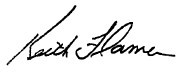 Keith Flamer